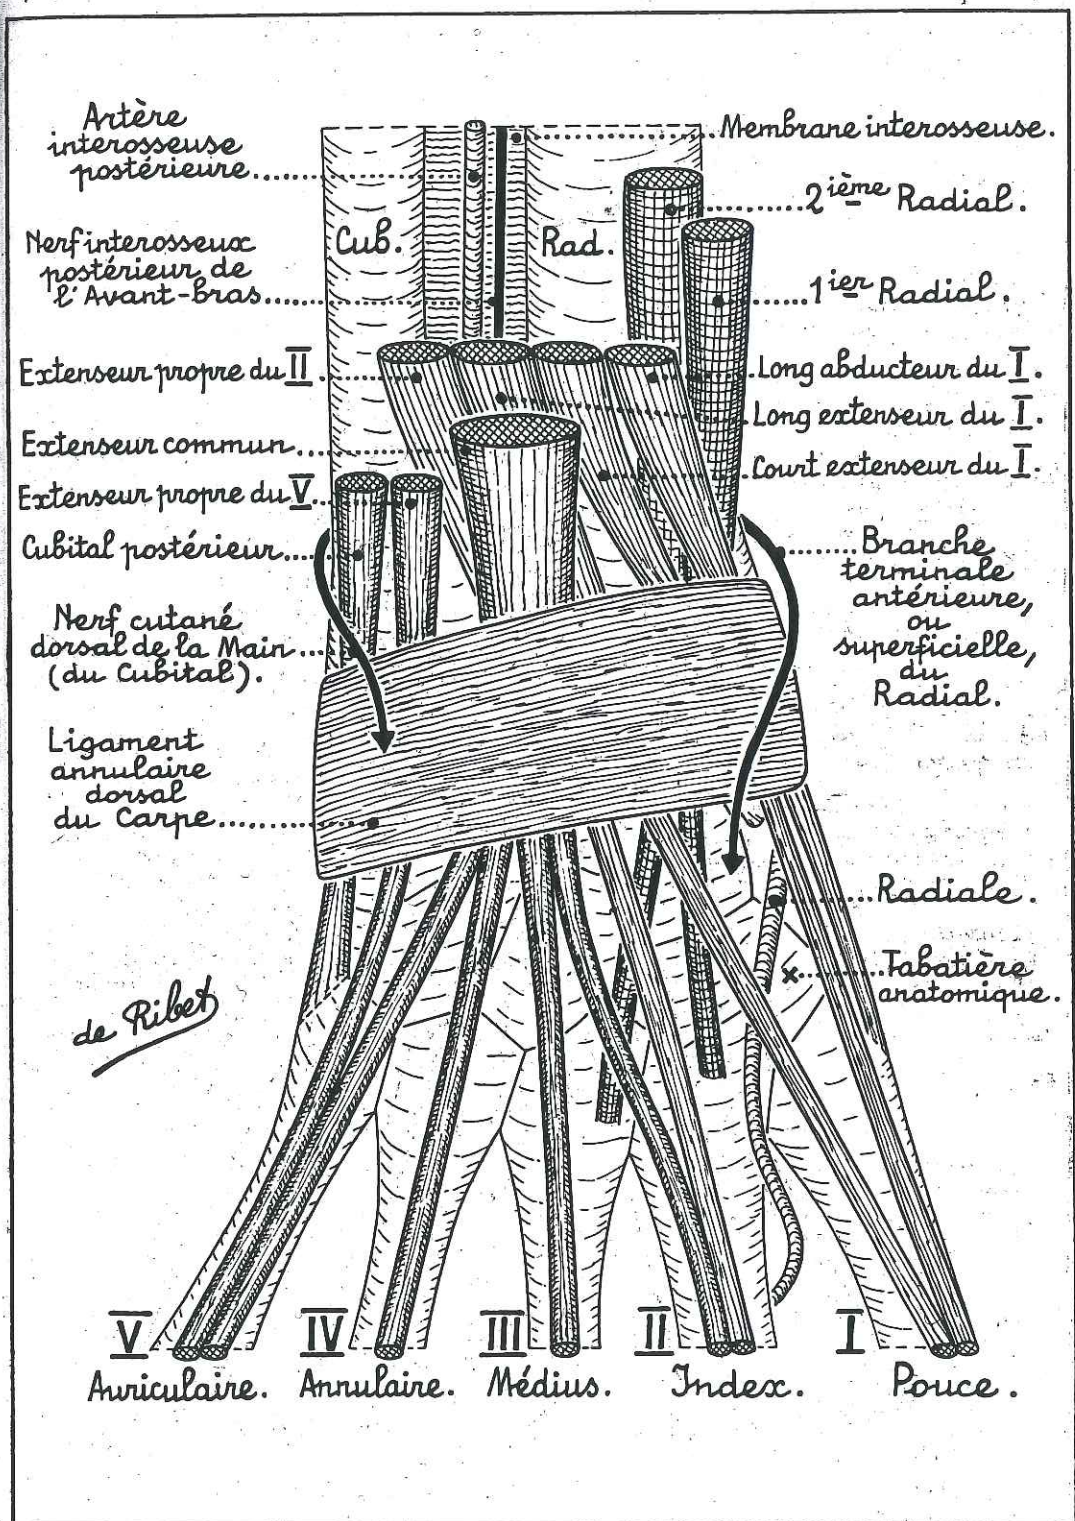 Artère
interosseuse
postérieure
Nerf interosseux
postérieur de
l'Avant-bras
Extenseur propre du II
Extenseur commun
Extenseur propre du V
Cubital postérieur
Nerf cutané
dorsal de la Main
(du Cubital).
Ligament
annulaire
dorsal
du Carpe
de Ribet
Cub.
Rad.
Membrane interosseuse.
2ième Radial.
1ier Radial.
Long abducteur du I.
Long extenseur du I.
Court extenseur du I.
Branche
terminale
antérieure,
ou
superficielle,
du
Radial.
Radiale.
Tabatière
anatomique.
V IV III II I
Auriculaire. Annulaire. Médius. Index. Pouce.